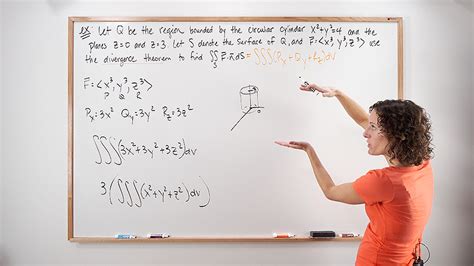 ex Let Q be the region bounded by the circular cylinder x²+y²=4 and the
planes z=0 and z=3. Let S denote the surface of Q, and F=<x³, y³, z³> use
the divergence theorem to find ∬_S F·n dS = ∭(Px+Qy+Rz)dV
F=<x³, y³, z³>
P Q R
Px=3x² Qy=3y² Rz=3z²
∭(3x²+3y²+3z²)dV
3(∭(x²+y²+z²)dV)